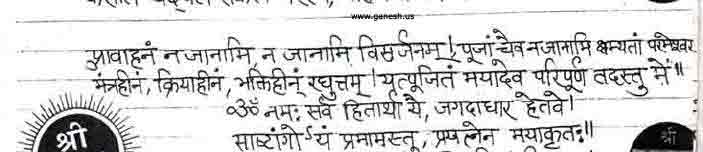 www.ganesh.us
प्रावाहनं न जानामि, न जानामि विसर्जनम् ! पूजां चैव न जानामि क्षम्यतां परमेश्वर
मंत्रहीनं, क्रियाहीनं, भक्तिहीनं रघुत्तम् ! यत्पूजितं मयादेव परिपूर्ण तदस्तु में॥
ॐ नमः सर्व हितार्था ये, जगदाधार हेतवे।
साष्टांगोऽयं प्रमामस्तू, प्रयत्नेन मयाकृतः॥
श्री
श्री